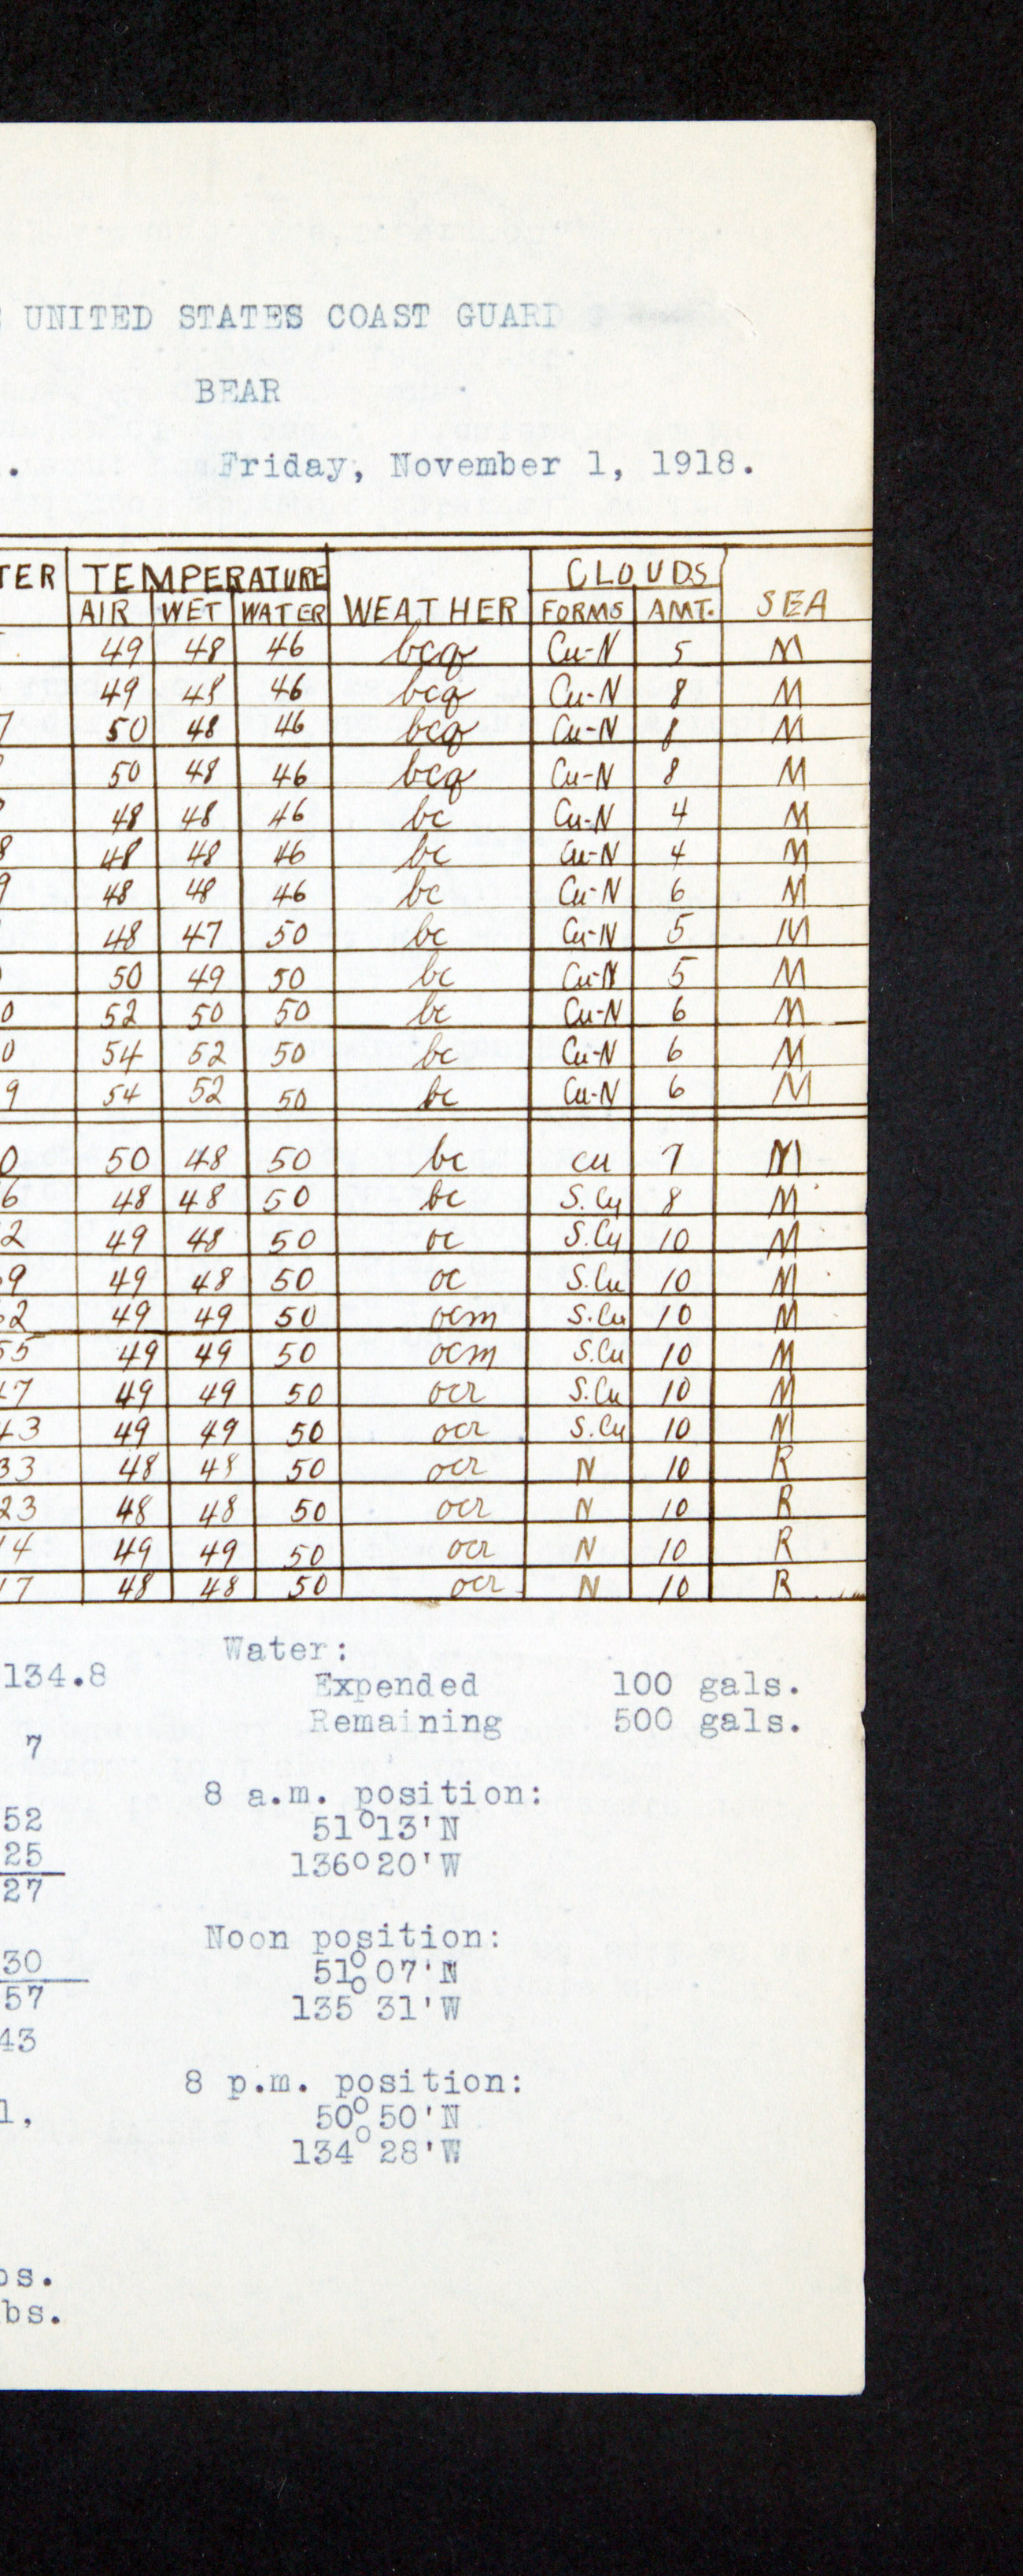 UNITED STATES COAST GUARD
BEAR
Friday, November 1, 1918.
TER TEMPERATURE WEATHER CLOUDS SEA
AIR WET WATER FORMS AMT.
49 48 46 bcq Cu-N 5 M
49 48 46 bcq Cu-N 8 M
7 50 48 46 bcq Cu-N 8 M
50 48 46 bcq Cu-N 8 M
48 48 46 bc Cu-N 4 M
8 48 48 46 bc Cu-N 4 M
9 48 48 46 bc Cu-N 6 M
48 47 50 bc Cu-N 5 M
50 49 50 bc Cu-N 5 M
0 52 50 50 bc Cu-N 6 M
0 54 52 50 bc Cu-N 6 M
9 54 52 50 bc Cu-N 6 M
0 50 48 50 bc cu 7 M
6 48 48 50 bc S.Cu 8 M
2 49 48 50 oc S.Cu 10 M
9 49 48 50 oc S.Cu 10 M
2 49 49 50 ocm S.Cu 10 M
55 49 49 50 ocm S.Cu 10 M
47 49 49 50 ocr S.Cu 10 M
43 49 49 50 ocr S.Cu 10 M
33 48 48 50 ocr N 10 R
23 48 48 50 ocr N 10 R
14 49 49 50 ocr N 10 R
17 48 48 50 ocr N 10 R
Water:
134.8 Expended 100 gals.
Remaining 500 gals.
7
8 a.m. position:
52 51°13'N
25 136°20'W
27
Noon position:
30 51°07'N
57 135°31'W
43
8 p.m. position:
1, 50°50'N
134°28'W
bs.
bs.